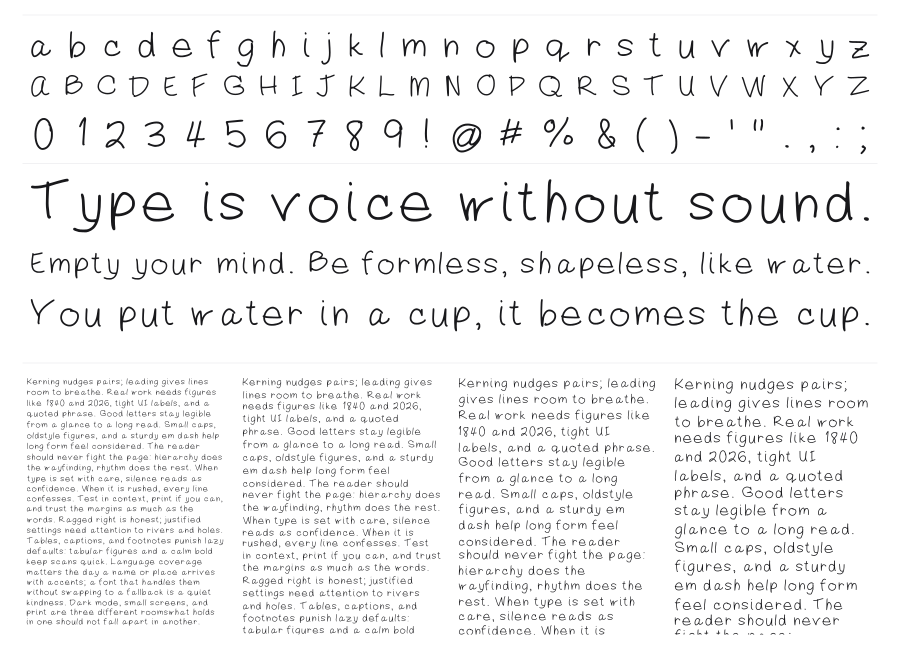 a b c d e f g h i j k l m n o p q r s t u v w x y z
A B C D E F G H I J K L M N O P Q R S T U V W X Y Z
0 1 2 3 4 5 6 7 8 9 ! @ # % & ( ) - ' " . , : ;
Type is voice without sound.
Empty your mind. Be formless, shapeless, like water.
You put water in a cup, it becomes the cup.
Kerning nudges pairs; leading gives lines
room to breathe. Real work needs figures
like 1840 and 2026, tight UI labels, and a
quoted phrase. Good letters stay legible
from a glance to a long read. Small caps,
oldstyle figures, and a sturdy em dash help
long form feel considered. The reader
should never fight the page: hierarchy does
the wayfinding, rhythm does the rest. When
type is set with care, silence reads as
confidence. When it is rushed, every line
confesses. Test in context, print if you can,
and trust the margins as much as the
words. Ragged right is honest; justified
settings need attention to rivers and holes.
Tables, captions, and footnotes punish lazy
defaults: tabular figures and a calm bold
keep scans quick. Language coverage
matters the day a name or place arrives
with accents; a font that handles them
without swapping to a fallback is a quiet
kindness. Dark mode, small screens, and
print are three different roomswhat holds
in one should not fall apart in another.
Kerning nudges pairs; leading gives
lines room to breathe. Real work
needs figures like 1840 and 2026,
tight UI labels, and a quoted
phrase. Good letters stay legible
from a glance to a long read. Small
caps, oldstyle figures, and a sturdy
em dash help long form feel
considered. The reader should
never fight the page: hierarchy does
the wayfinding, rhythm does the rest.
When type is set with care, silence
reads as confidence. When it is
rushed, every line confesses. Test
in context, print if you can, and trust
the margins as much as the words.
Ragged right is honest; justified
settings need attention to rivers
and holes. Tables, captions, and
footnotes punish lazy defaults:
tabular figures and a calm bold
Kerning nudges pairs; leading
gives lines room to breathe.
Real work needs figures like
1840 and 2026, tight UI
labels, and a quoted phrase.
Good letters stay legible
from a glance to a long
read. Small caps, oldstyle
figures, and a sturdy em
dash help long form feel
considered. The reader
should never fight the page:
hierarchy does the
wayfinding, rhythm does the
rest. When type is set with
care, silence reads as
confidence. When it is
Kerning nudges pairs;
leading gives lines room
to breathe. Real work
needs figures like 1840
and 2026, tight UI
labels, and a quoted
phrase. Good letters
stay legible from a
glance to a long read.
Small caps, oldstyle
figures, and a sturdy
em dash help long form
feel considered. The
reader should never
fight the page: